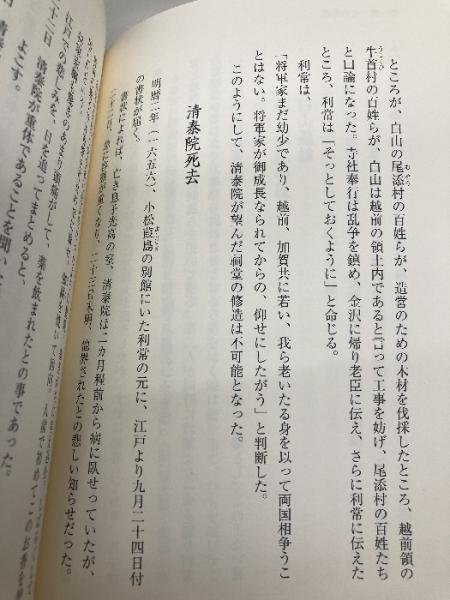 ところが、白山の尾添村の百姓らが、造営のための木材を伐採したところ、越前領の
牛首村の百姓らが、白山は越前の領土内であると言って工事を妨げ、尾添村の百姓たち
と口論になった。寺社奉行は乱争を鎮め、金沢に帰り老臣に伝え、さらに利常に伝えた
ところ、利常は「そっとしておくように」と命じる。
利常は、
「将軍家まだ幼少であり、越前、加賀共に若い、我ら老いたる身を以って両国相争うこ
とはない。将軍家が御成長なられてからの、仰せにしたがう」と判断した。
このようにして、清泰院が望んだ祠堂の修造は不可能となった。
清泰院死去
明暦二年（一六五六）、小松葭島の別館にいた利常の元に、江戸より九月二十四日付
の書状が届く。
書状によれば、亡き息子光高の室、清泰院は二カ月程前から病に臥せっていたが、
二十二日、急に容態が重くなり、二十三日未明、他界されたとの悲しい知らせだった。
江戸での悲しみを、日を追ってまとめると、
二十三日 清泰院が重体であることを聞いた
よこす。
頭痛がして 薬を飲まれたとの事であった。